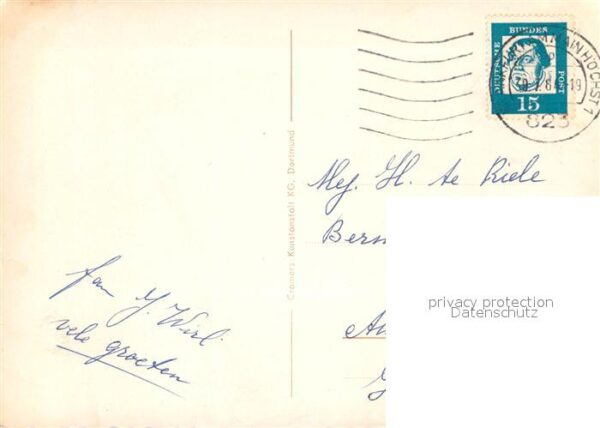 DEUTSCHE BUNDES POST
15
HÖCHST 1
19
823
Cramers Kunstanstalt KG, Dortmund
Mej. H. te Riele
Bern
fam Y. Wirl
vele groeten
privacy protection
Datenschutz